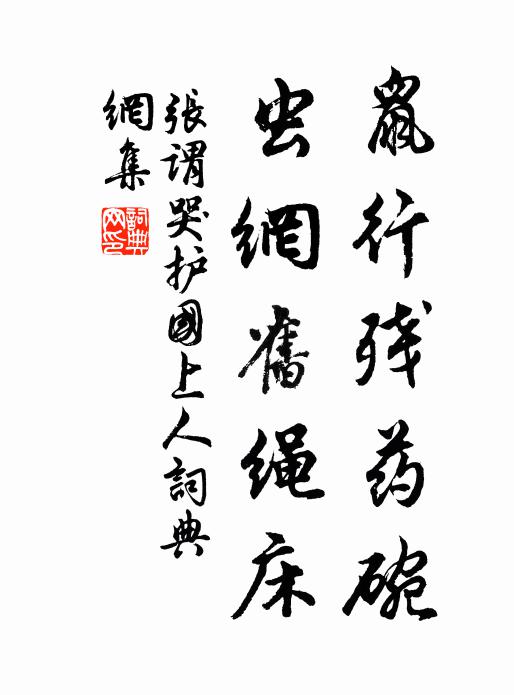 鼠行残药碗
虫網舊绳床
張谓哭护國上人詞典
網集
詞典網印